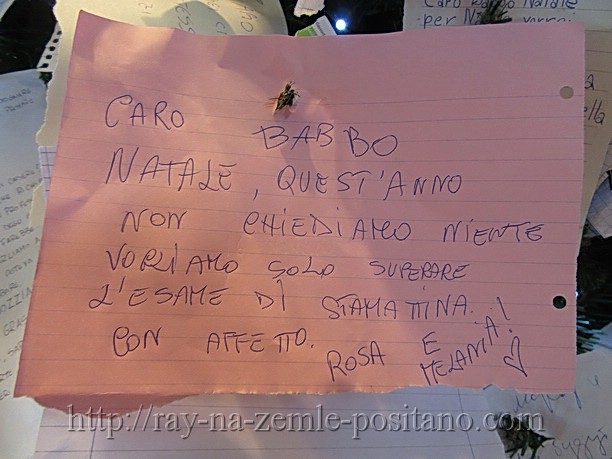 CARO BABBO
NATALE, QUEST'ANNO
NON CHIEDIAMO NIENTE
VORLIAMO SOLO SUPERARE
L'ESAME DÌ STAMATTINA!
CON AFFETTO.
ROSA E
MELANIA! ♡
Caro Babbo Natale
per
http://ray-na-zemle-positano.com/